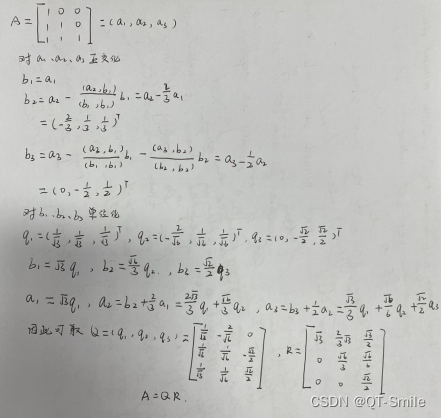 A = [1 0 0; 1 1 0; 1 1 1] = (a₁, a₂, a₃)
对 a₁、a₂、a₃ 正交化
b₁ = a₁
b₂ = a₂ - (a₂,b₁)/(b₁,b₁) b₁ = a₂ - 2/3 a₁
= (-2/3, 1/3, 1/3)ᵀ
b₃ = a₃ - (a₃,b₁)/(b₁,b₁) b₁ - (a₃,b₂)/(b₂,b₂) b₂ = a₃ - 1/2 a₂
= (0, -1/2, 1/2)ᵀ
对 b₁、b₂、b₃ 单位化
q₁ = (1/√3, 1/√3, 1/√3)ᵀ, q₂ = (-2/√6, 1/√6, 1/√6)ᵀ, q₃ = (0, -√2/2, √2/2)ᵀ
b₁ = √3 q₁, b₂ = √6/3 q₂, b₃ = √2/2 q₃
a₁ = √3 q₁, a₂ = b₂ + 2/3 a₁ = 2√3/3 q₁ + √6/3 q₂, a₃ = b₃ + 1/2 a₂ = √3/3 q₁ + √6/6 q₂ + √2/2 q₃
因此可取 Q = (q₁, q₂, q₃) = , R =
A = QR.
CSDN @QT-Smile